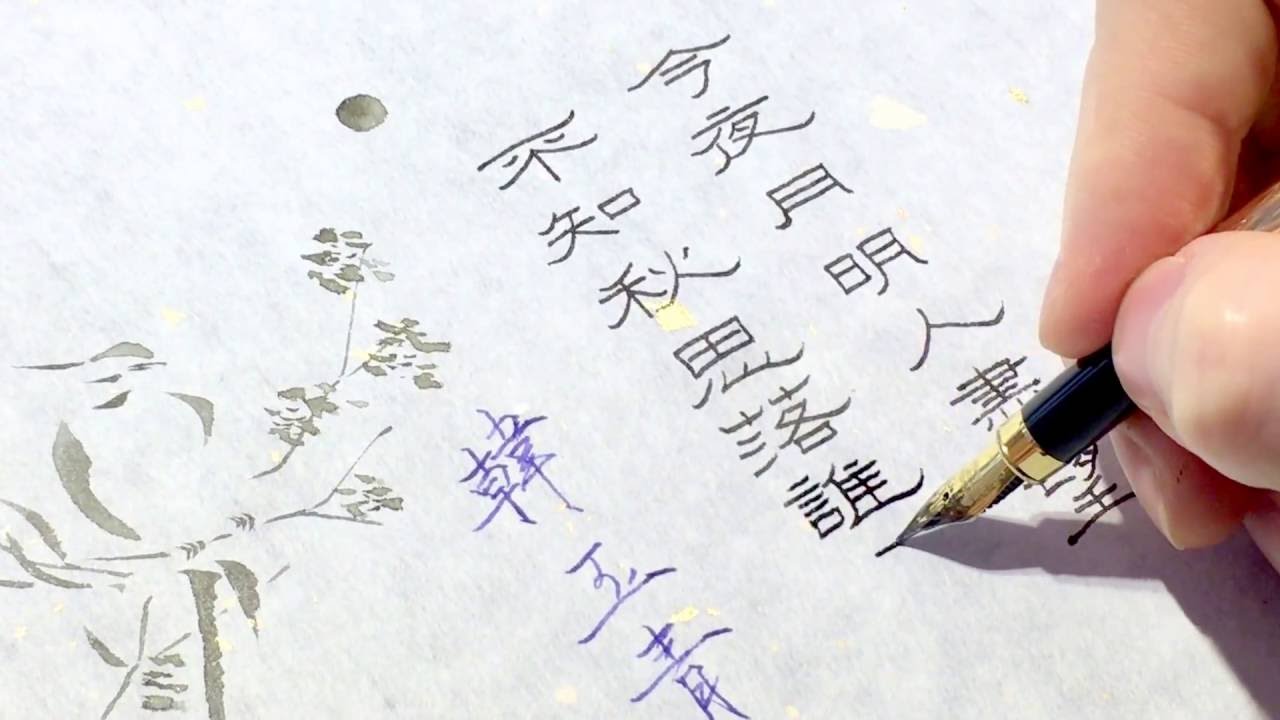 今夜月明人盡望
不知秋思落誰
韓玉青